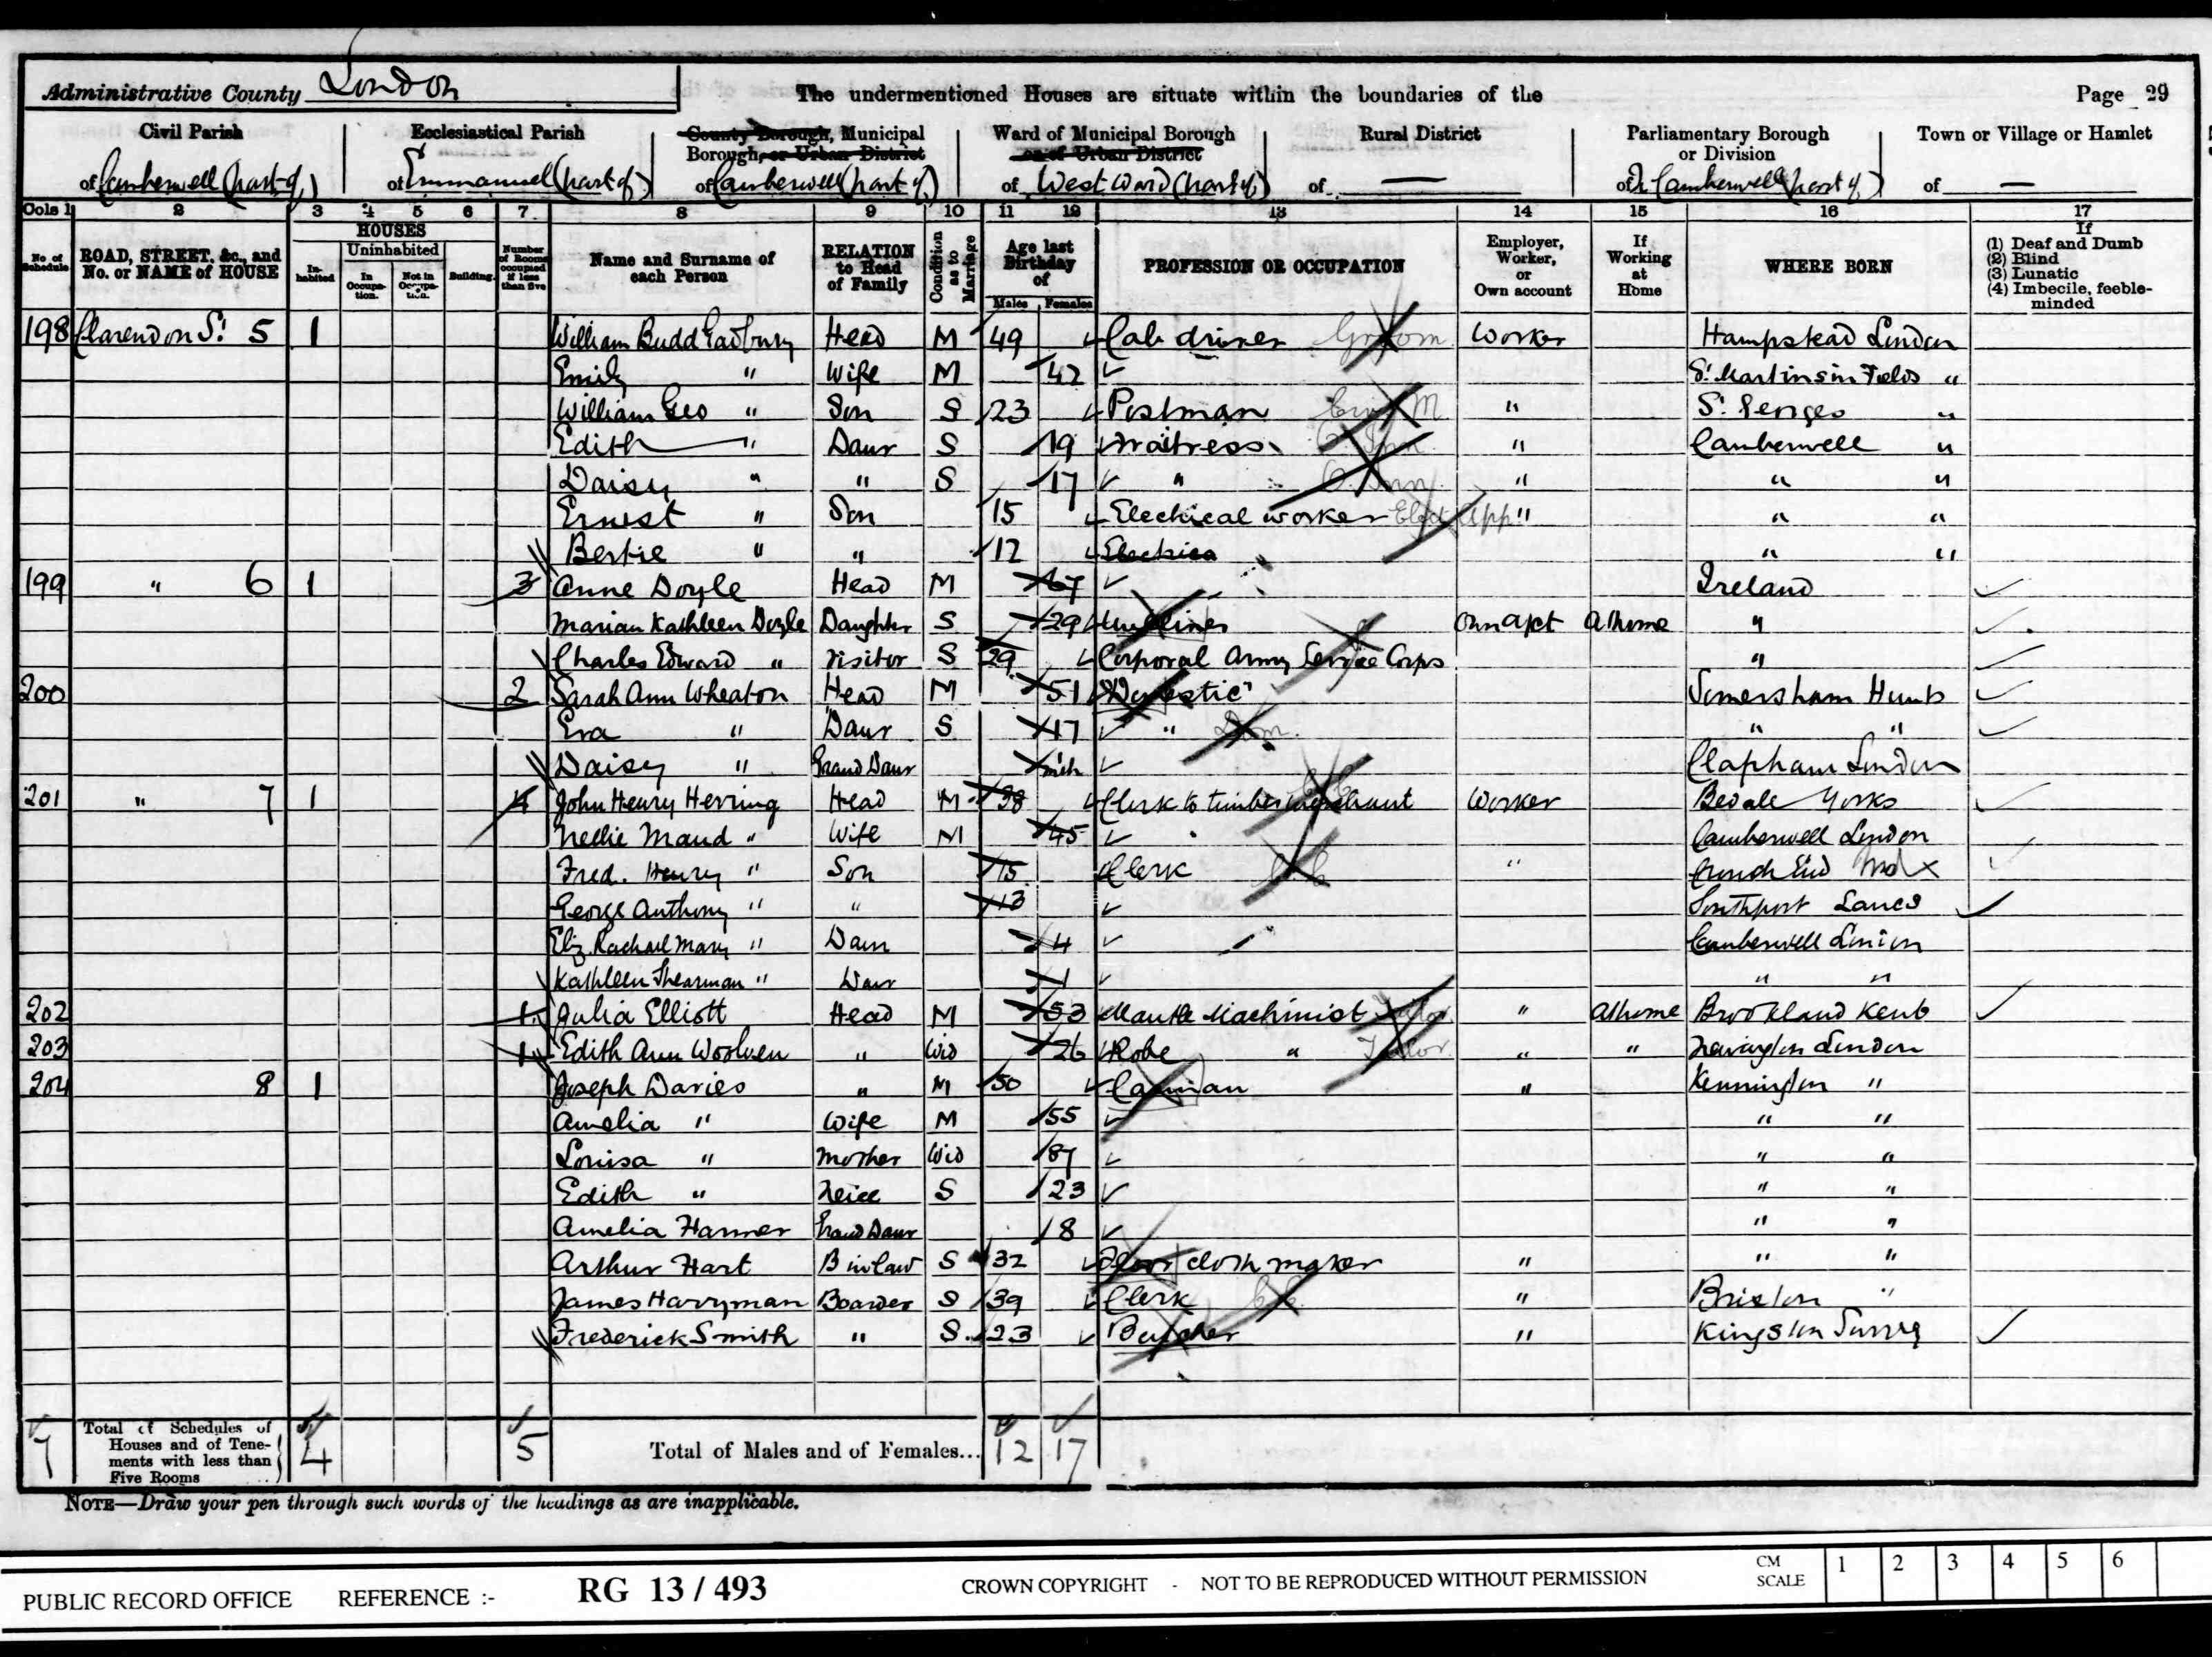 Administrative County London
The undermentioned Houses are situate within the boundaries of the
Page 29
Civil Parish
of Camberwell (part of)
Ecclesiastical Parish
of Emmanuel (part of)
County Borough, Municipal
Borough, or Urban District
of Camberwell (part of)
Ward of Municipal Borough
or of Urban District
of West Ward (part of)
Rural District
of —
Parliamentary Borough
or Division
of Camberwell (part of)
Town or Village or Hamlet
of —
Cols 1 2 3 4 5 6 7 8 9 10 11 12 13 14 15 16 17
No. of Schedule
ROAD, STREET, &c., and No. or NAME of HOUSE
HOUSES
Inhabited
Uninhabited
In Occupation.
Not in Occupation.
Building.
Number of Rooms occupied if less than five
Name and Surname of each Person
RELATION to Head of Family
Condition as to Marriage
Age last Birthday of
Males Females
PROFESSION OR OCCUPATION
Employer, Worker, or Own account
If Working at Home
WHERE BORN
If
(1) Deaf and Dumb
(2) Blind
(3) Lunatic
(4) Imbecile, feeble-minded
198 Clarendon St 5 1 William Budd Head M 49 Cab driver Groom Worker Hampstead London
Emily " Wife M 42 St Martins in Fields "
William Geo " Son S 23 Postman " St Georges "
Edith " Daur S 19 Waitress " Camberwell "
Daisy " " S 17 " " " "
Ernest " Son 15 Electrical worker Elect App " " "
Bertie " " 12 Electrica " "
199 " 6 1 3 Anne Doyle Head M 67 Ireland
Marian Kathleen Doyle Daughter S 29 Own acct At home "
Charles Edward " Visitor S 29 Corporal Army Service Corps "
200 2 Sarah Ann Wheaton Head M 51 "Domestic" Somersham Hunts
Eva " Daur S 17 " Dom " "
Daisy " Grand Daur mth Clapham London
201 " 7 1 4 John Henry Herring Head M 38 Clerk to timber merchant Worker Bedale Yorks
Nellie Maud " Wife M 45 Camberwell London
Fred. Henry " Son 15 Clerk " Crouch End Mdx
George Anthony " " 13 Southport Lancs
Eliz. Rachael Mary " Daur 4 Camberwell London
Kathleen Shearman " Daur 1 " "
202 1 Julia Elliott Head M 53 Mantle Machinist Tailor " At home Brookland Kent
203 1 Edith Ann Woolven " Wid 26 Robe " Tailor " " Newington London
204 8 1 Joseph Davies " M 50 Carman " Kennington "
Amelia " Wife M 55 " "
Louisa " Mother Wid 87 " "
Edith " Neice S 23 " "
Amelia Harmer Grand Daur 8 " "
Arthur Hart B in law S 32 Floor cloth maker " " "
James Harryman Boarder S 39 Clerk " Brixton "
Frederick Smith " S 23 Butcher " Kingston Surrey
7 Total of Schedules of Houses and of Tenements with less than Five Rooms 4 5 Total of Males and of Females... 12 17
NOTE—Draw your pen through such words of the headings as are inapplicable.
PUBLIC RECORD OFFICE REFERENCE :- RG 13 / 493 CROWN COPYRIGHT - NOT TO BE REPRODUCED WITHOUT PERMISSION
CM SCALE 1 2 3 4 5 6